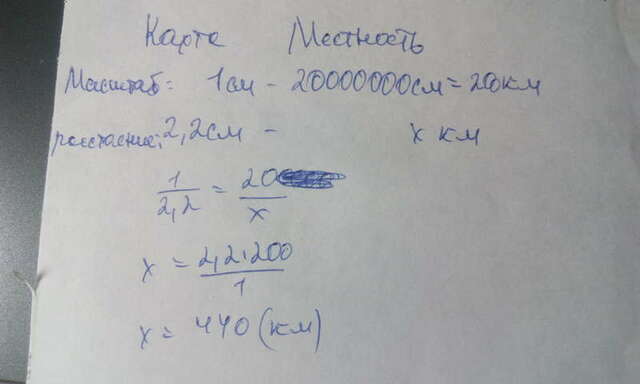 Карта Местность
Масштаб: 1см - 20000000см = 200км
расстояние: 2,2см - х км
1/2,2 = 20/х
х = 2,2·200/1
х = 440 (км)